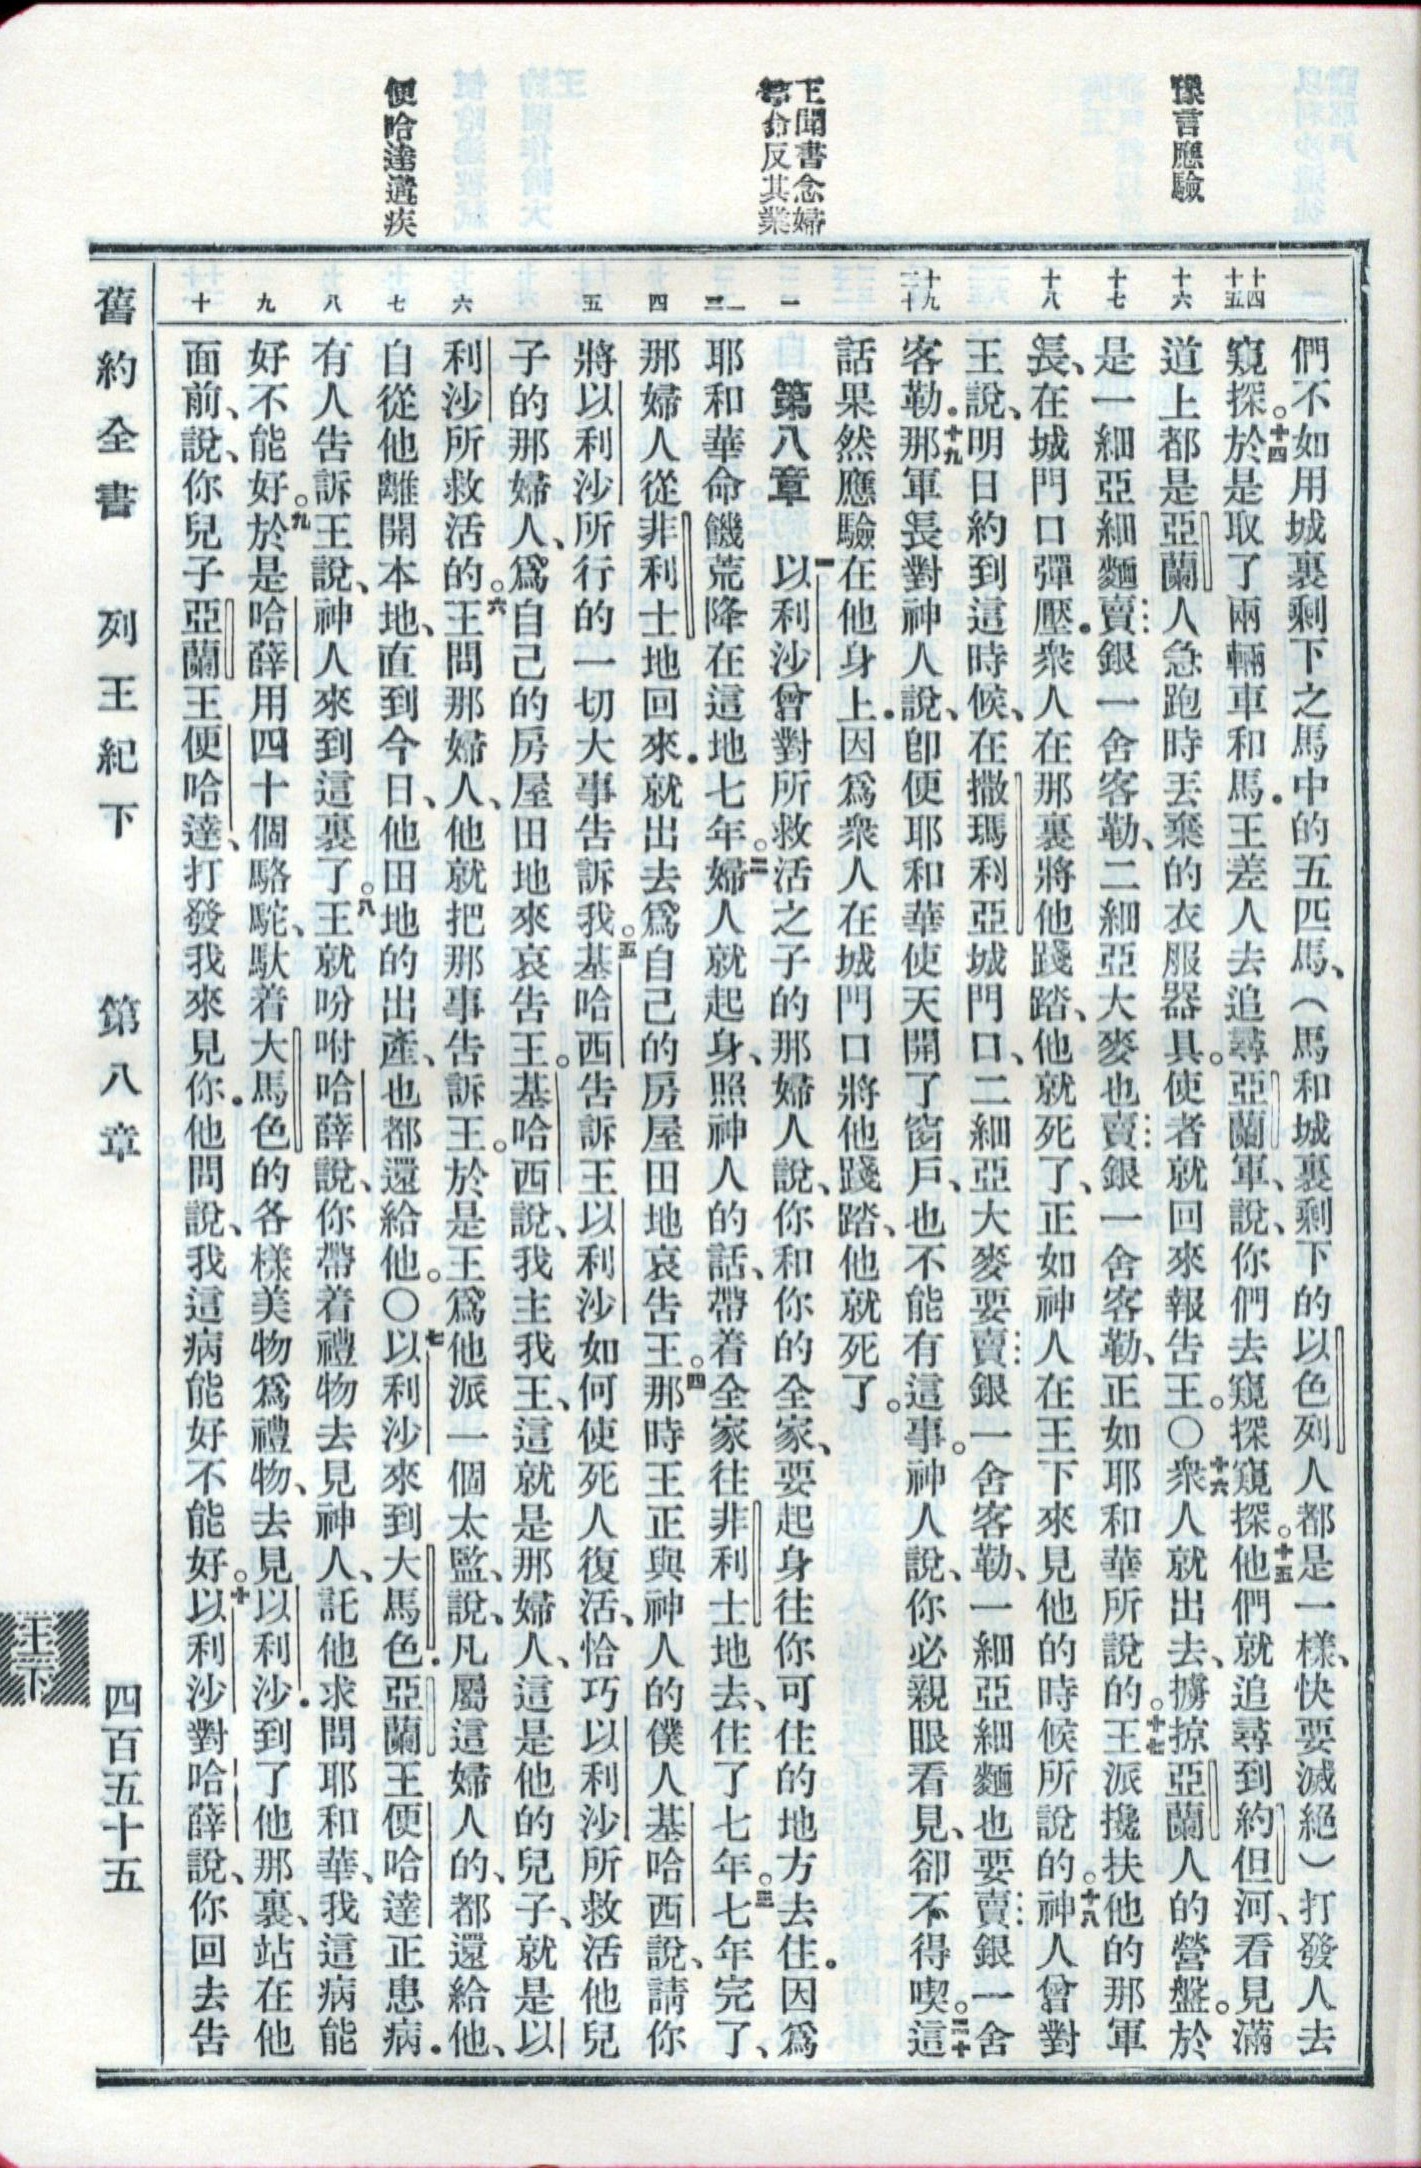 豫言應驗
王聞書念婦
命反其業
便哈達遘疾
十四
十五
十六
十七
十八
十九
二十
一
二
三
四
五
六
七
八
九
十
們不如用城裏剩下之馬中的五匹馬、（馬和城裏剩下的以色列人都是一樣、快要滅絕）打發人去
窺探。十四於是取了兩輛車和馬．王差人去追尋亞蘭軍、說、你們去窺探窺探。十五他們就追尋到約但河、看見滿
道上都是亞蘭人急跑時丟棄的衣服器具。使者就回來報告王。〇十六衆人就出去、擄掠亞蘭人的營盤。於
是一細亞細麵賣銀一舍客勒、二細亞大麥也賣銀一舍客勒、正如耶和華所說的。十七王派攙扶他的那軍
長、在城門口彈壓．衆人在那裏將他踐踏、他就死了、正如神人在王下來見他的時候所說的。十八神人曾對
王說、明日約到這時候、在撒瑪利亞城門口、二細亞大麥要賣銀一舍客勒、一細亞細麵也要賣銀一舍
客勒．十九那軍長對神人說、卽便耶和華使天開了窗戶、也不能有這事。神人說、你必親眼看見、卻不得喫。二十這
話果然應驗在他身上．因爲衆人在城門口將他踐踏、他就死了。
第八章 一以利沙曾對所救活之子的那婦人說、你和你的全家、要起身往你可住的地方去住．因爲
耶和華命饑荒降在這地七年。二婦人就起身、照神人的話、帶着全家往非利士地去、住了七年。三七年完了、
那婦人從非利士地回來．就出去爲自己的房屋田地哀告王。四那時王正與神人的僕人基哈西說、請你
將以利沙所行的一切大事告訴我。五基哈西告訴王以利沙如何使死人復活、恰巧以利沙所救活他兒
子的那婦人、爲自己的房屋田地來哀告王。基哈西說、我主我王、這就是那婦人、這是他的兒子、就是以
利沙所救活的。六王問那婦人、他就把那事告訴王。於是王爲他派一個太監、說、凡屬這婦人的、都還給他、
自從他離開本地、直到今日、他田地的出產、也都還給他。〇七以利沙來到大馬色．亞蘭王便哈達正患病．
有人告訴王說、神人來到這裏了。八王就吩咐哈薛說、你帶着禮物去見神人、託他求問耶和華、我這病能
好不能好。九於是哈薛用四十個駱駝、馱着大馬色的各樣美物爲禮物、去見以利沙．到了他那裏、站在他
面前、說、你兒子亞蘭王便哈達、打發我來見你．他問說、我這病能好不能好。十以利沙對哈薛說、你回去告
舊約全書 列王紀下 第八章 四百五十五
王下